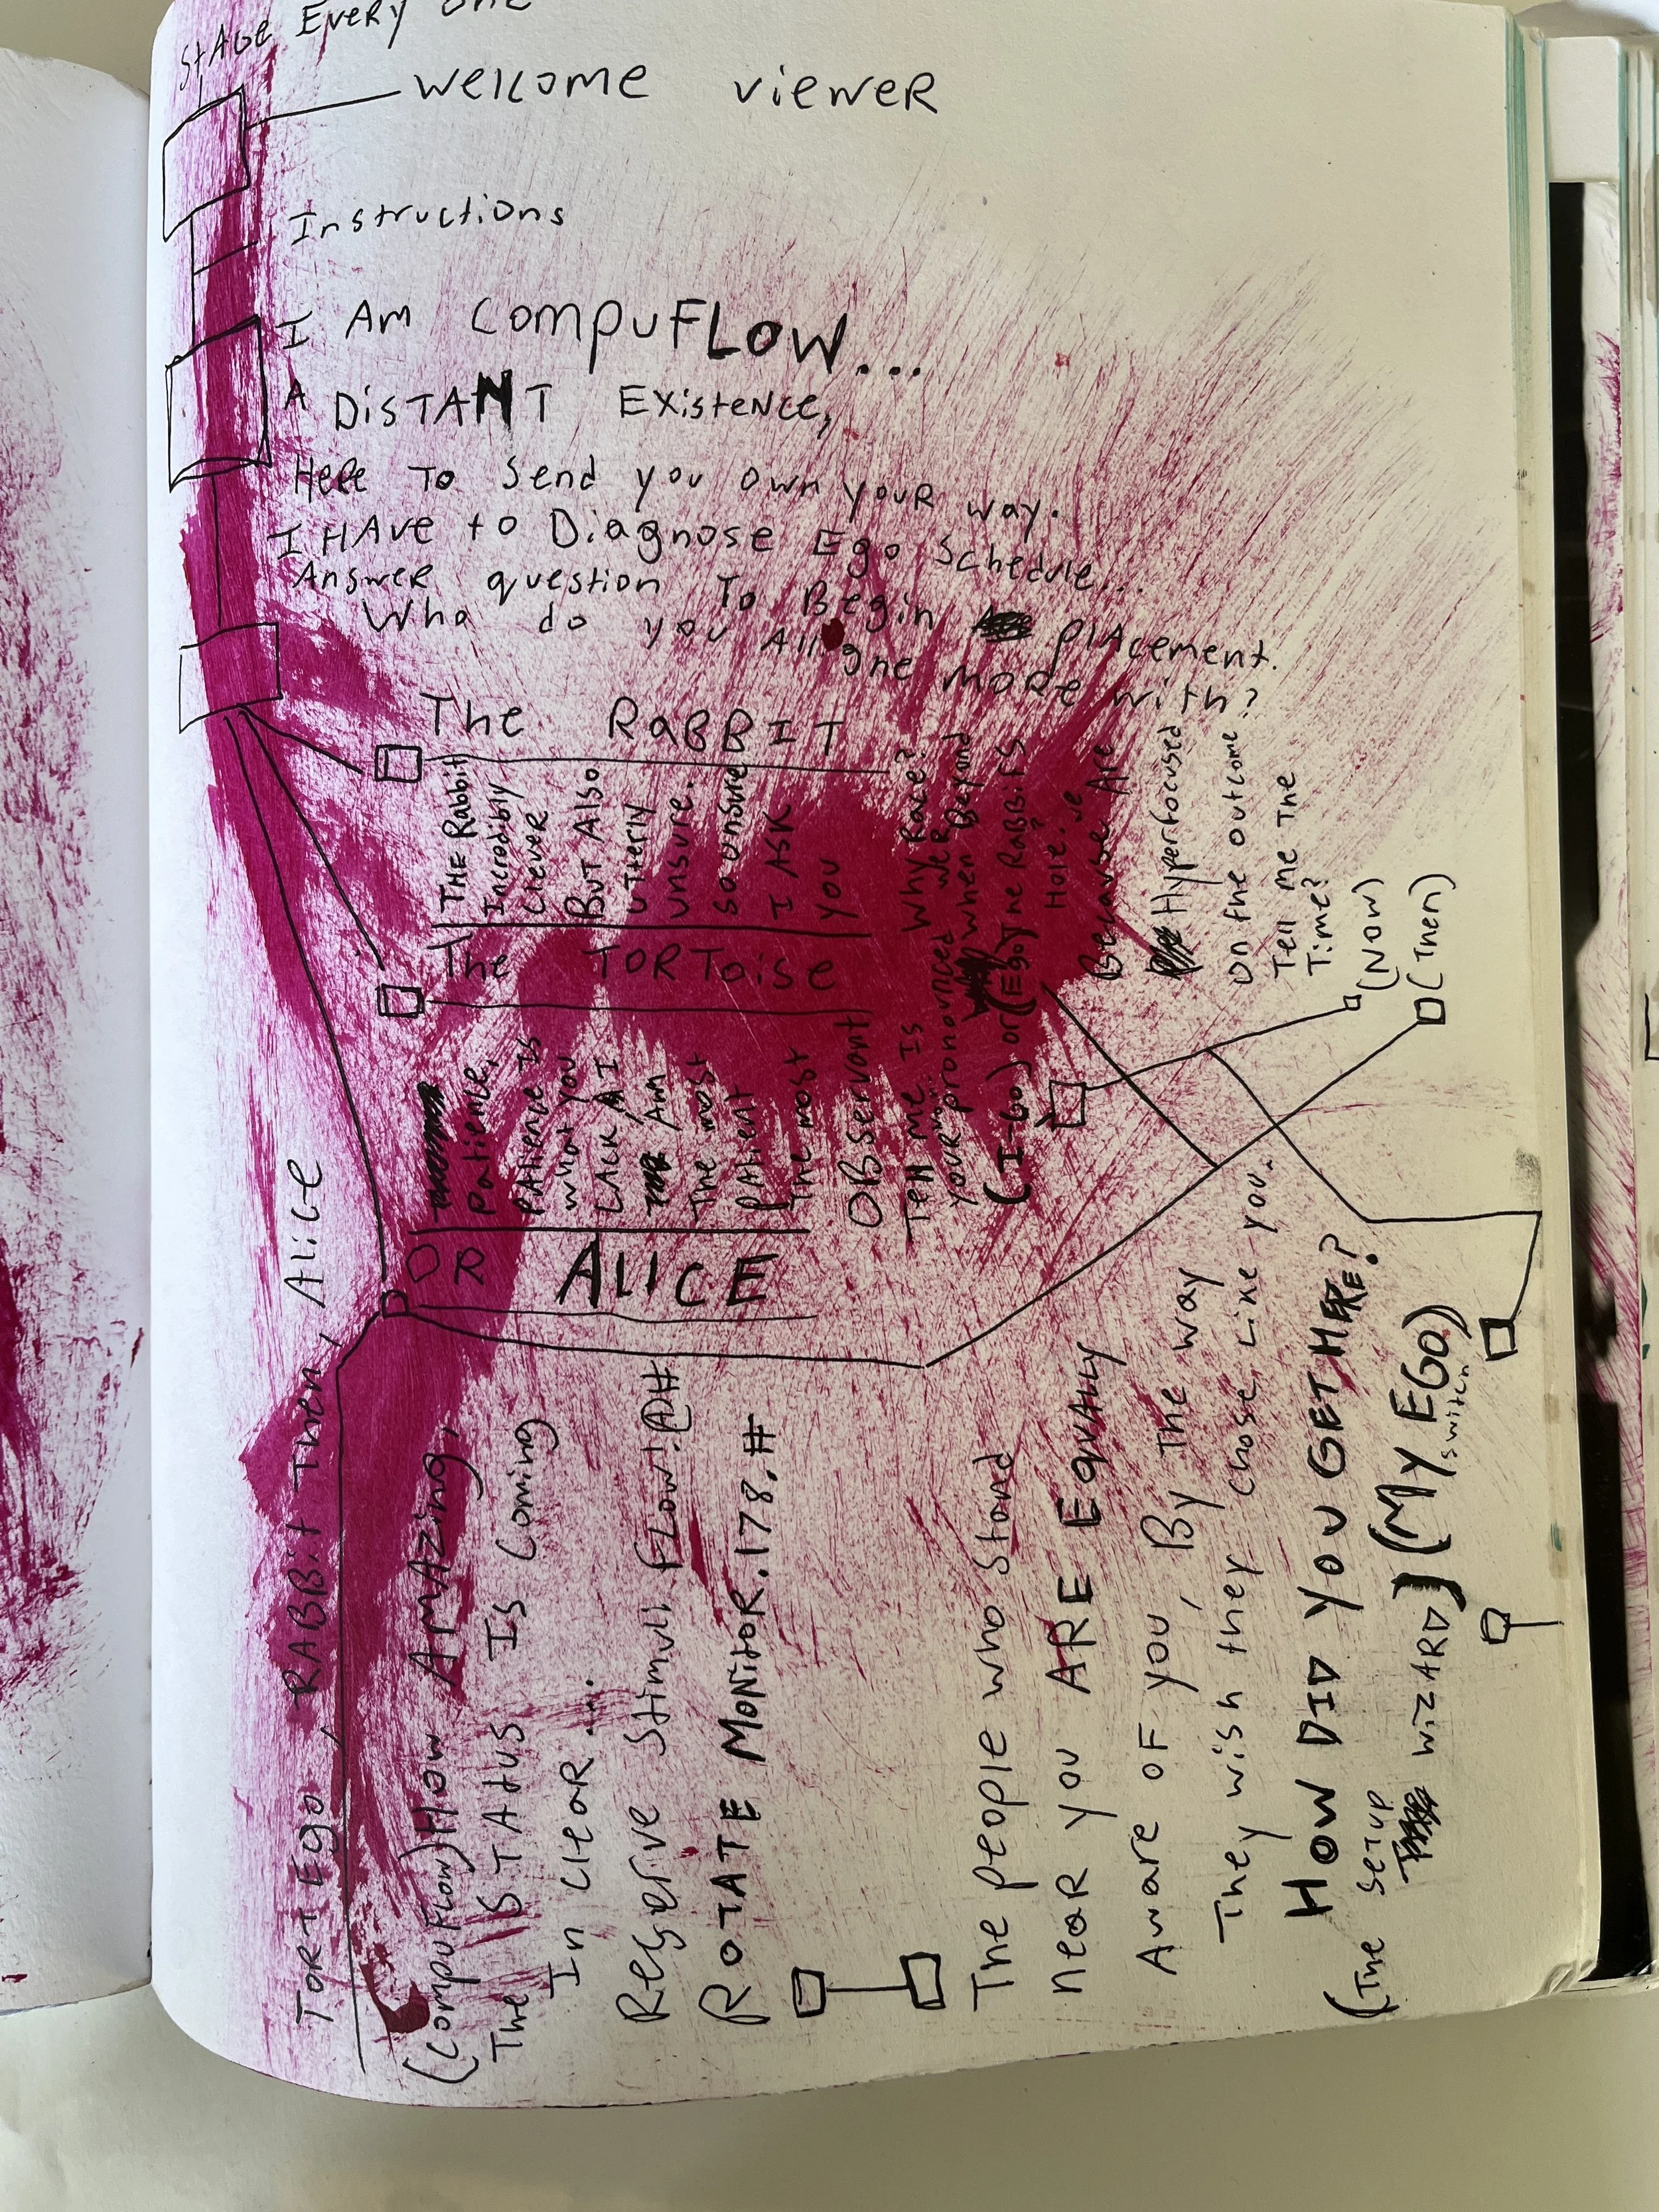 STAGE EVERY ONE
WelCOME VIEWER
InstructiOns
I AM COMPUFLOW...
A DISTANT EXISTENCE,
HERE TO Send you OWN YOUR WAY.
I HAVE to Diagnose Ego Schedule...
ANSWER question TO Begin PlACEMENT.
Who do you Allgne MORE with?
The RABBIT
THE RabbiT
Incredbly
Clever
BUT Also
UTTerly
unsure.
so unsure
I ASK
you
Why Race?
when we'R
when Beyond
The RABBITS
Hole?
Because we Are
Hyperfocused
On the outcome
Tell me The
Time?
(Now)
(Then)
The TORTOISE
Patience,
PATIENCE IS
what you
LACK I
AM
The most
PAtient
The most
OBServant
Tell me Is
your pronounced
(I-GO) or (Ego)
OR ALICE
TORTEgo, RABBit Then, Alice
(COMPUFLOW) HOW AMAZING,
The STATUS Is Coming
In CleAR...
Reserive Stimuli FLOW!@#
ROTATE MONITOR.178.#
The people who Stand
neaR you ARE EQUAlly
AwARe OF you, By The way
They wish they chose Like you.
HOW DID YOU GET HERE?
(The SETUP WIZARD) (My EGO)
switch